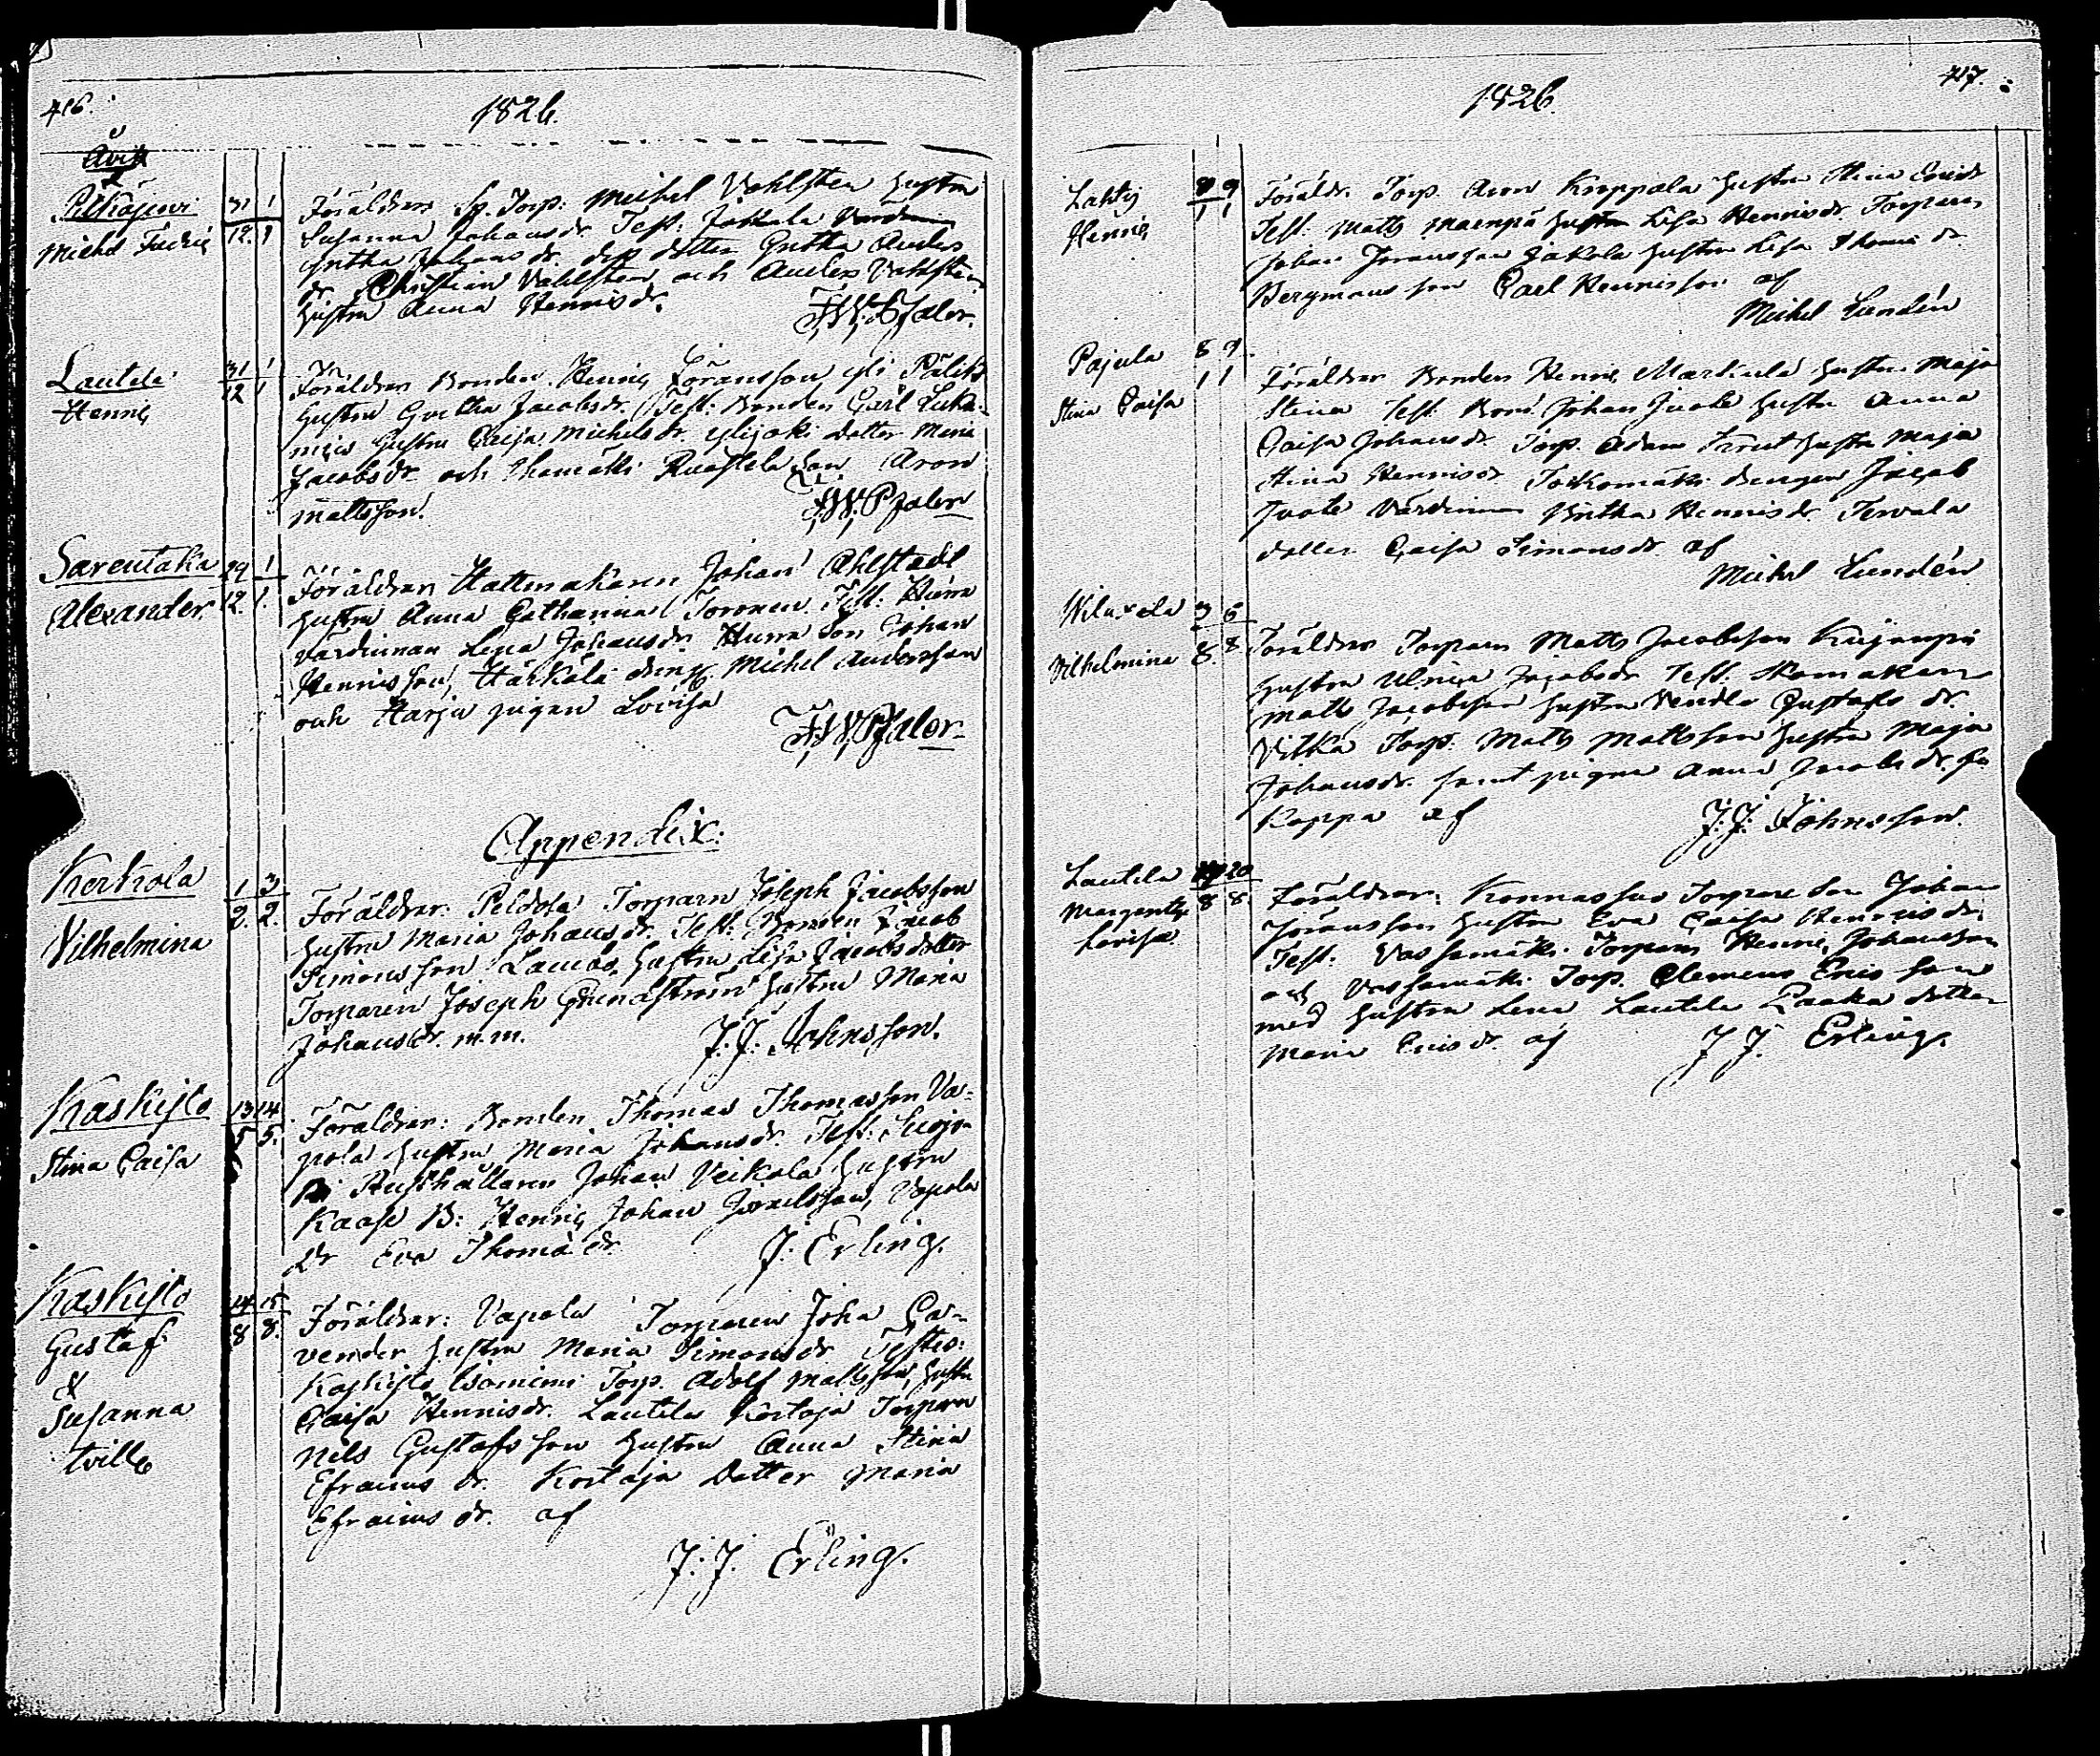 416.
1826.
Avik
Pitkäjerwi 31 1
12. 1
Michel Fredric
Föräldrar Sp. Torp: Michel Vahlsten hustru
Susanna Johansdr Test: Jakkula
Gretha Johansdr. dess dotter Gretha Anders
dr. Christian Vahlsten och Anders Vahlsten
hustru Anna Henricsdr.
F.W. Pfaler.
Lautela 31 1
12 1
Henric
Föräldrar Bonden Henric Göransson yli
hustru Gretha Jacobsdr. Test: Bonden Carl
hustru Caisa Michelsdr. ylijoki dotter Maria
Jacobsdr och son Aron
Mattsson.
F.W. Pfaler
Sarentaka 29 1
12. 1.
Alexander.
Föräldrar Hattmakaren Johan Ahlstedt
hustru Anna Catharina Toronen Test:
värdinnan Lena Johansdr. son Johan
Henricsson, Härkälä dräng. Michel Andersson
och Harju pigan Lovisa
F.W. Pfaler
Appendix:
Kerkola 1 3
2. 2.
Vilhelmina
Föräldrar: Peldola Torparn Joseph Jacobsson
hustru Maria Johansdr. Test: Bonden Jacob
Simonsson Lacus, hustru Lisa Jacobsdotter
Torparen Joseph Grundström hustru Maria
Johansdr. m.m.
J.J. Johnsson.
Kaskisto 13 14
5 5.
Stina Caisa
Föräldrar: Bonden Thomas Thomasson Va-
pola hustru Maria Johansdr. Test:
Rusthållaren Johan Veikola hustru
B: Henric Johan Israelsson, Vapola
dr Eva Thomædr.
J. Erling.
Kaskisto 14 15
8 8.
Gustaf
&
Susanna
tvill.
Föräldrar: Vapola Torparen Joha Ca-
vender hustru Maria Simonsdr Testes:
Kaskisto Isoniemi Torp. Adolf Mattsson, hustru
Caisa Henricsdr. Lautela Kortoja Torparn
Nils Gustafsson hustru Anna Stina
Efraims dr. Kortoja Dotter Maria
Efraims dr. af
J.J. Erling.
1826.
417.
Lahty 8 9
1 1
Henric
Föräldr. Torp. Aron Knoppala hustru Stina Ericsdr
Test: Matts Maenpä hustru Lisa Henricsdr Torparen
Johan Jöransson Jakola hustru Lisa Thomæ dr.
Bergmans son Carl Henricsson af
Michel Lundén
Pajula 8 9
1 1
Stina Caisa
Föräldrar Bonden Henric Markula hustru Maja
Stina Test: Bond. Johan Juote hustru Anna
Caisa Johansdr. Torp. Adam hustru Maja
Stina Henricsdr. Torkomäki drengen Jacob
Juote Värdinnan Britha Henricsdr. Tervala
dotter Caisa Simonsdr. af
Michel Lundén
3 6
8. 8
Vilhelmina
Föräldrar Torparen Matts Jacobsson
hustru Ulrica Jacobsdr Test: Skomakare
Matts Jacobsson hustru Vendla Gustafs dr.
Vitka Torp: Matts Mattsson hustru Maja
Johansdr. samt pigan Anna Jacobsdr. fr.
Koppa af
J.J. Johnsson.
Lautela 20
8 8
Margaretha
Lovisa
Föräldrar: Torpare son Johan
Jöransson hustru Eva Caisa Henricsdr.
Test: Vassamäki Torparen Henric Johansson
och Vassamäki Torp. Clemens Ericsson
med hustru Lena Lautela Paaka dotter
Maria Ericsdr. af
J J. Erling.